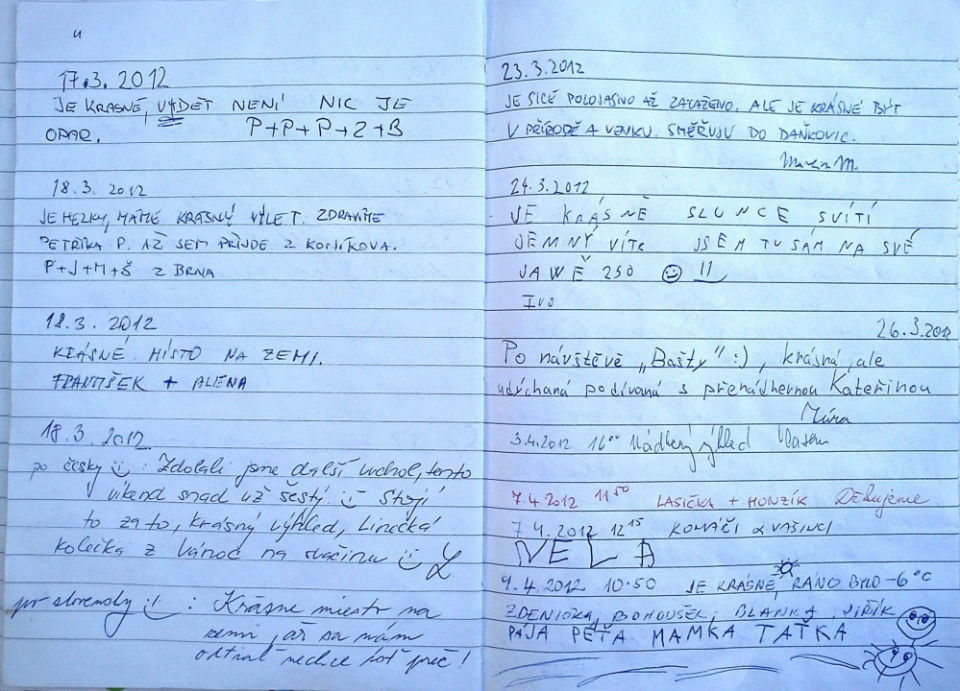 17.3.2012
JE KRASNÉ, VIDĚT NENÍ NIC JE
OPAR. P+P+P+Z+B
18.3. 2012
JE HEZKY, MÁME KRÁSNÝ VÝLET. ZDRAVÍME
PETŘÍKA P. AŽ SEM PŘIJDE Z KONÍKOVA.
P+J+M+Š Z BRNA
18.3.2012
KRÁSNÉ MÍSTO NA ZEMI.
FRANTIŠEK + ALENA
18.3.2012
po česky : Zdolali jsme další vrchol, tento
víkend snad už šestý Stojí
to za to, krásný výhled, Linecká
kolečka z Vánoc na svačinu
po slovensky : Krásne miesto na
zemi, až sa nám
odtiaľ nechce ísť preč!
23.3.2012
JE SICE POLOJASNO AŽ ZATAŽENO, ALE JE KRÁSNÉ BÝT
V PŘÍRODĚ A VENKU. SMĚŘUJU DO DAŇKOVIC.
24.3.2012
JE KRÁSNĚ SLUNCE SVÍTÍ
JEMNÝ VÍTR JSEM TU SÁM NA SVÉ
JAWĚ 250 !!
IVO
26.3.2012
Po návštěvě „Bašty" :), krásná, ale
udýchaná podívaná s přenádhernou Kateřinou
Můra
3.4.2012 16°° Nádherný výhled
7.4.2012 11 50 LASIČKA + HONZÍK Děkujeme
7.4.2012 12 15 KOMÁČI a VAŠINCI
NELA
9.4.2012 10.50 JE KRÁSNĚ, RÁNO BYLO -6°C
ZDENIČKA, BOHOUŠEK, BLANKA, JIŘÍK
PÁJA PÉŤA MAMKA TAŤKA